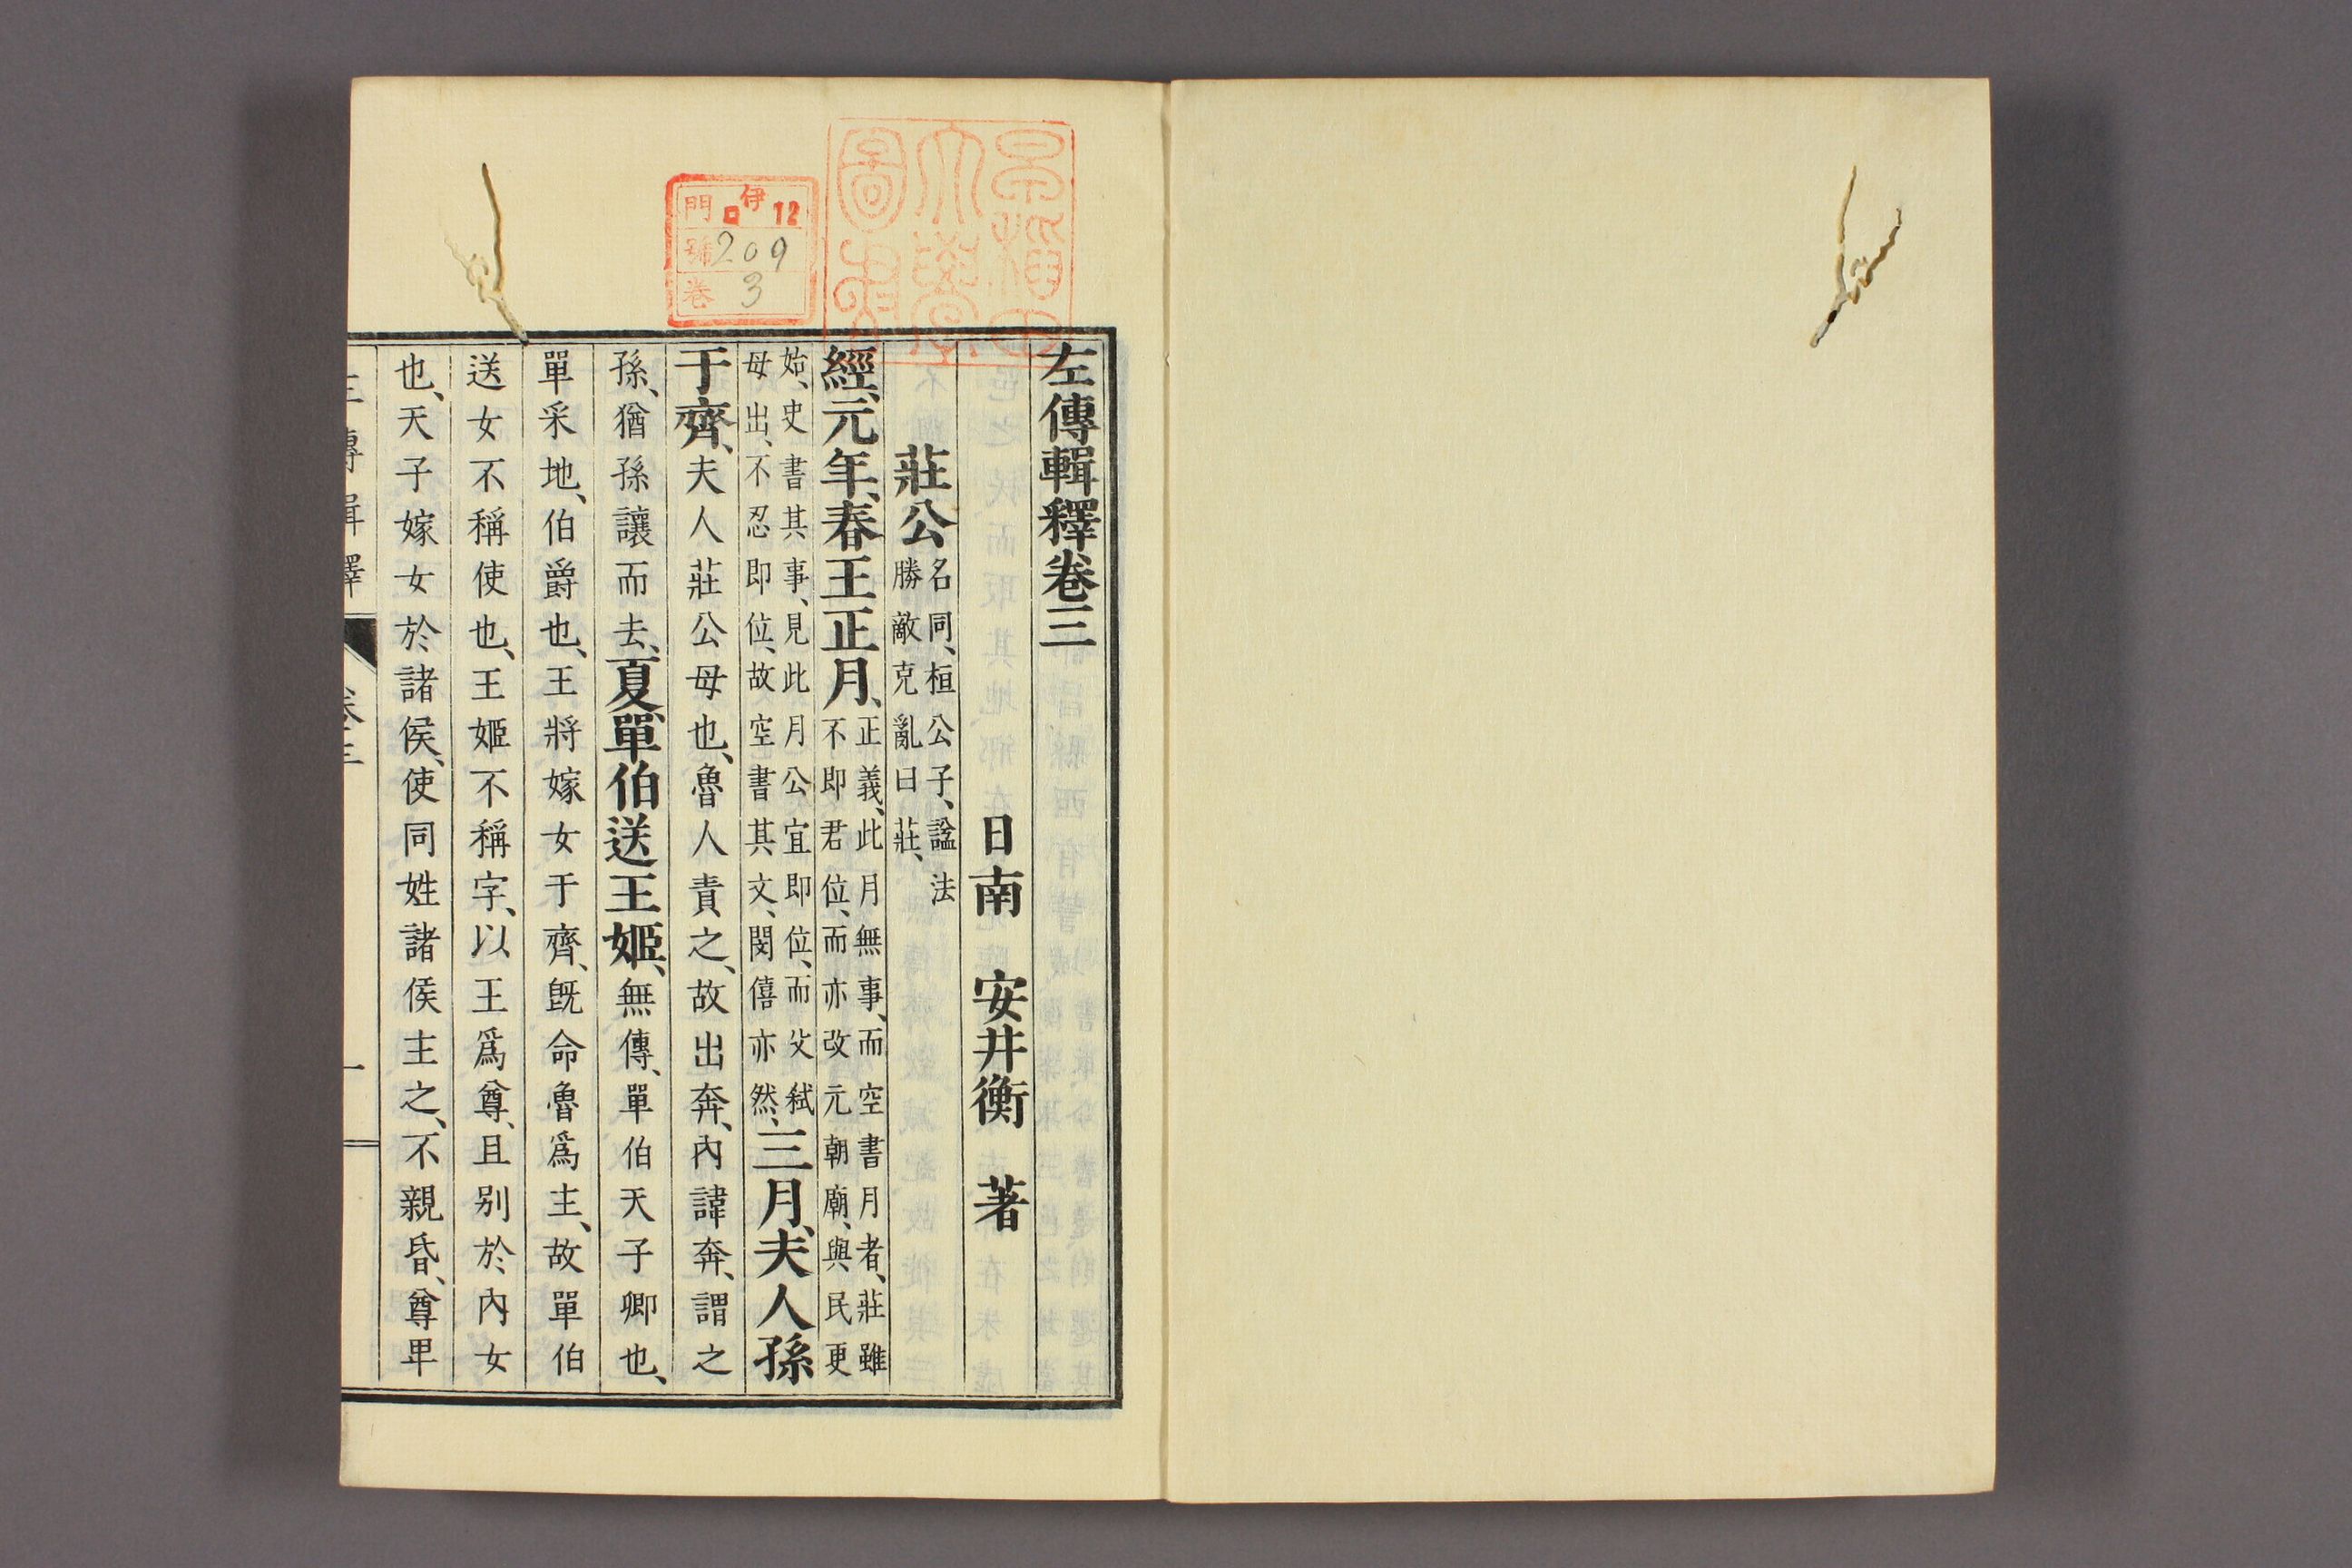 左傳輯釋卷三
日南 安井衡 著
莊公 名同、桓公子、諡法
勝敵克亂曰莊、
經、元年、春王正月、正義、此月無事、而空書月者、莊雖
不即君位、而亦改元朝廟、與民更
始、史書其事、見此月公宜即位、而父弒
母出、不忍即位、故空書其文、閔僖亦然、三月、夫人孫
于齊、夫人莊公母也、魯人責之、故出奔、內諱奔、謂之
孫、猶孫讓而去、夏單伯送王姬、無傳、單伯天子卿也、
單采地、伯爵也、王將嫁女于齊、旣命魯爲主、故單伯
送女不稱使也、王姬不稱字、以王爲尊、且別於內女
也、天子嫁女於諸侯、使同姓諸侯主之、不親昏、尊卑
左傳輯釋 卷三 一
早稻田大學圖書
門 伊 ロ 12
號 209
卷 3